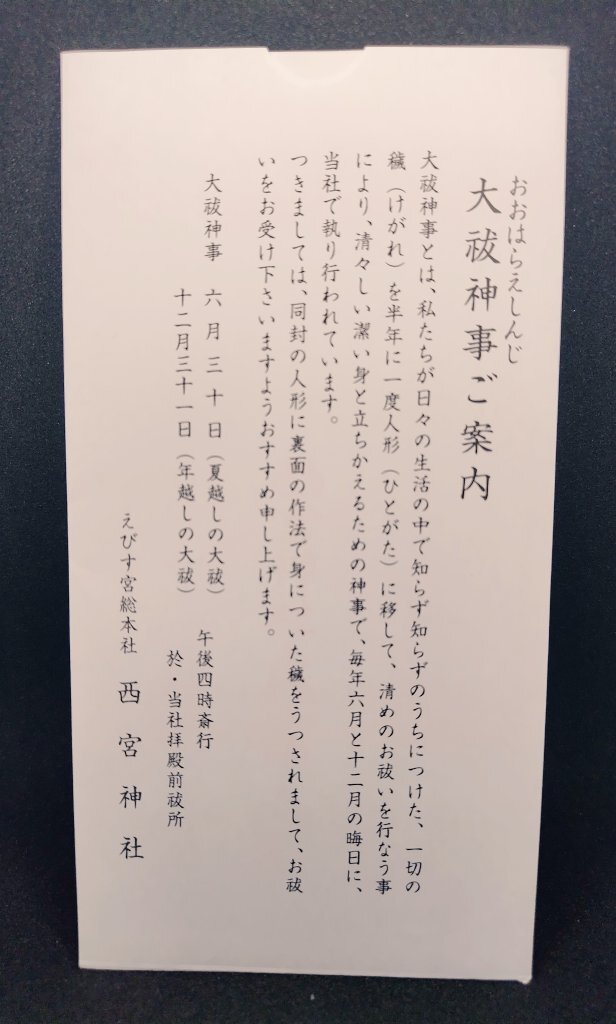 おおはらえしんじ
大祓神事ご案内
大祓神事とは、私たちが日々の生活の中で知らず知らずのうちにつけた、一切の
穢（けがれ）を半年に一度人形（ひとがた）に移して、清めのお祓いを行なう事
により、清々しい潔い身と立ちかえるための神事で、毎年六月と十二月の晦日に、
当社で執り行われています。
つきましては、同封の人形に裏面の作法で身についた穢をうつされまして、お祓
いをお受け下さいますようおすすめ申し上げます。
大祓神事　六月三十日（夏越しの大祓）
十二月三十一日（年越しの大祓）
午後四時斎行
於・当社拝殿前祓所
えびす宮総本社　西宮神社